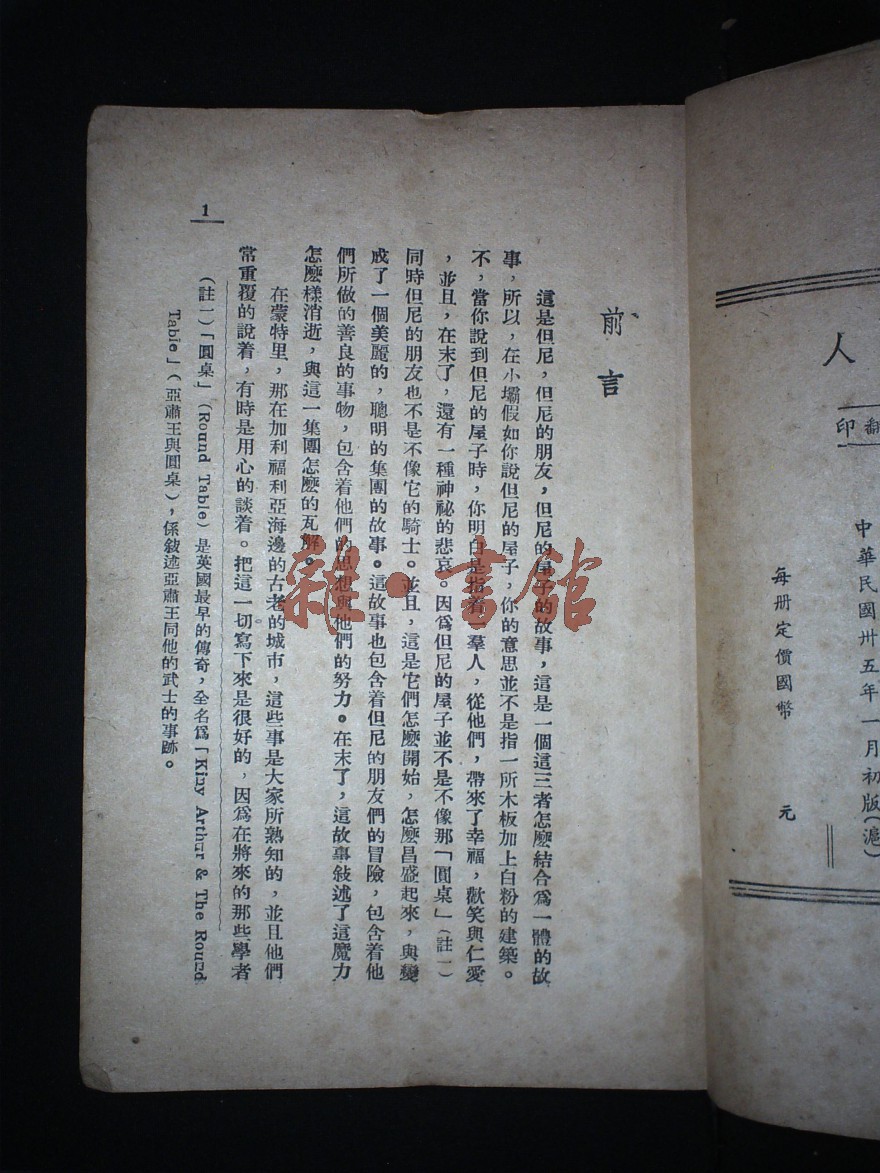 人
翻印
中華民國卅五年一月初版(滬
每册定價國幣　元
前言
這是但尼，但尼的朋友，但尼的屋子的故事，這是一個這三者怎麽結合爲一體的故
事，所以，在小壩假如你說但尼的屋子，你的意思並不是指一所木板加上白粉的建築。
不，當你說到但尼的屋子時，你明白是指着一羣人，從他們，帶來了幸福，歡笑與仁愛
，並且，在末了，還有一種神祕的悲哀。因爲但尼的屋子並不是不像那「圓桌」(註一)
同時但尼的朋友也不是不像它的騎士。並且，這是它們怎麽開始，怎麽昌盛起來，與變
成了一個美麗的，聰明的集團的故事。這故事也包含着但尼的朋友們的冒險，包含着他
們所做的善良的事物，包含着他們的思想與他們的努力。在末了，這故事敍述了這魔力
怎麽樣消逝，與這一集團怎麽的瓦解。
在蒙特里，那在加利福利亞海邊的古老的城市，這些事是大家所熟知的，並且他們
常重覆的說着，有時是用心的談着。把這一切寫下來是很好的，因爲在將來的那些學者
(註一)「圓桌」(Round Table)是英國最早的傳奇，全名爲「King Arthur & The Round
Table」(亞肅王與圓桌)，係敍述亞肅王同他的武士的事跡。
1
雜·書館